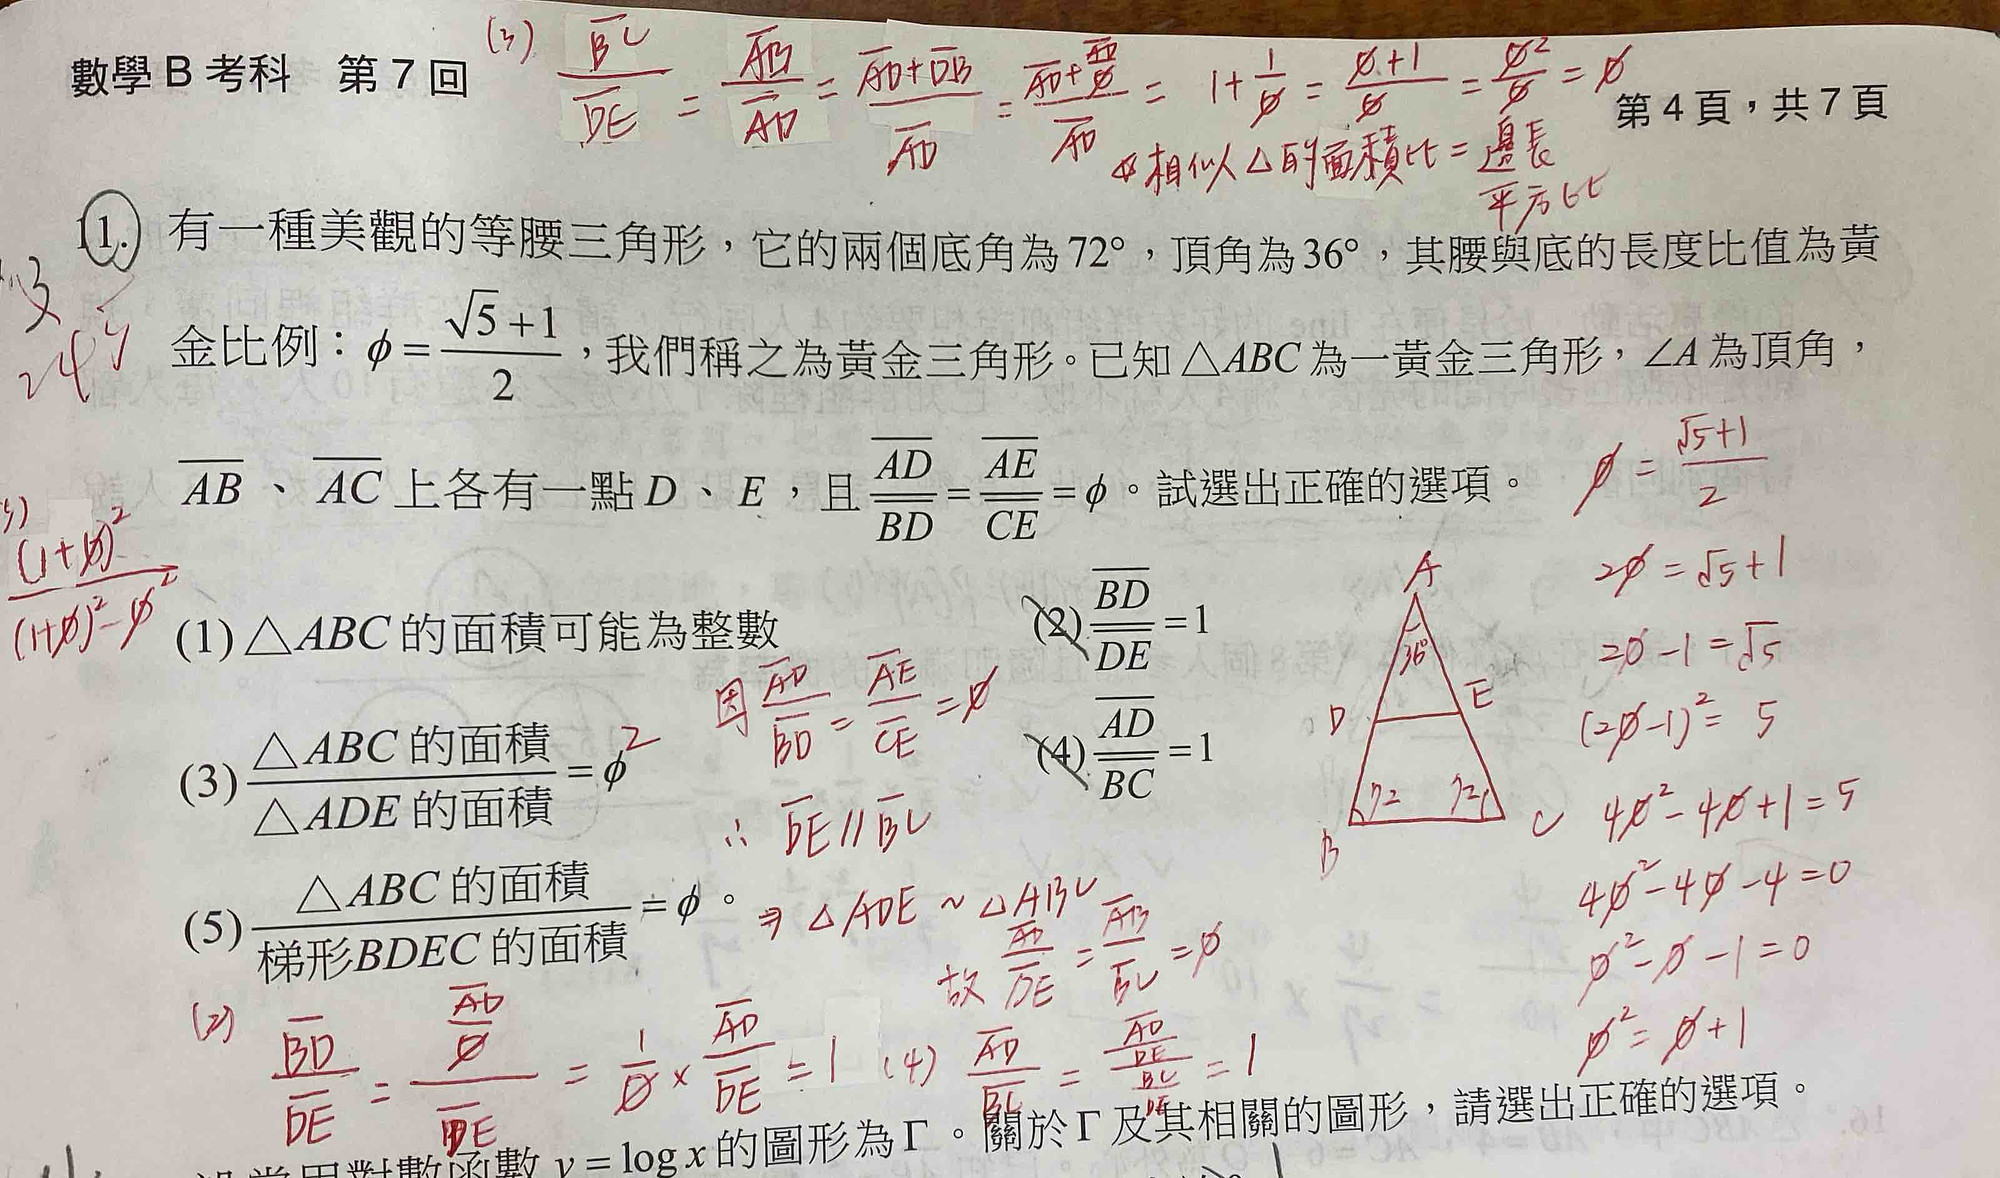 數學 B 考科 第 7 回
(3) BC/DE = AB/AD = (AD+DB)/AD = (AD+AD/φ)/AD = 1+1/φ = (φ+1)/φ = φ²/φ = φ
第 4 頁，共 7 頁
相似△的面積比 = 邊長
平方比
11. 有一種美觀的等腰三角形，它的兩個底角為 72°，頂角為 36°，其腰與底的長度比值為黃
金比例：φ = (√5+1)/2，我們稱之為黃金三角形。已知 △ABC 為一黃金三角形，∠A 為頂角，
AB、AC 上各有一點 D、E，且 AD/BD = AE/CE = φ。試選出正確的選項。
φ = (√5+1)/2
2φ = √5+1
2φ-1 = √5
(2φ-1)² = 5
4φ²-4φ+1 = 5
4φ²-4φ-4 = 0
φ²-φ-1 = 0
φ² = φ+1
(1+φ)²/((1+φ)²-φ²)
(1) △ABC 的面積可能為整數
(2) BD/DE = 1
(3) △ABC 的面積/△ADE 的面積 = φ²
(4) AD/BC = 1
(5) △ABC 的面積/梯形BDEC 的面積 = φ。
因 AD/BD = AE/CE = φ
∴ DE // BC
⇒ △ADE ~ △ABC
故 AD/DE = AB/BC = φ
A
36°
D
E
72
72
B
C
(2) BD/DE = (AD/φ)/DE = 1/φ × AD/DE = 1
(4) AD/BC = (AD/DE)/(BC/DE) = 1
y = log x 的圖形為 Γ。關於 Γ 及其相關的圖形，請選出正確的選項。